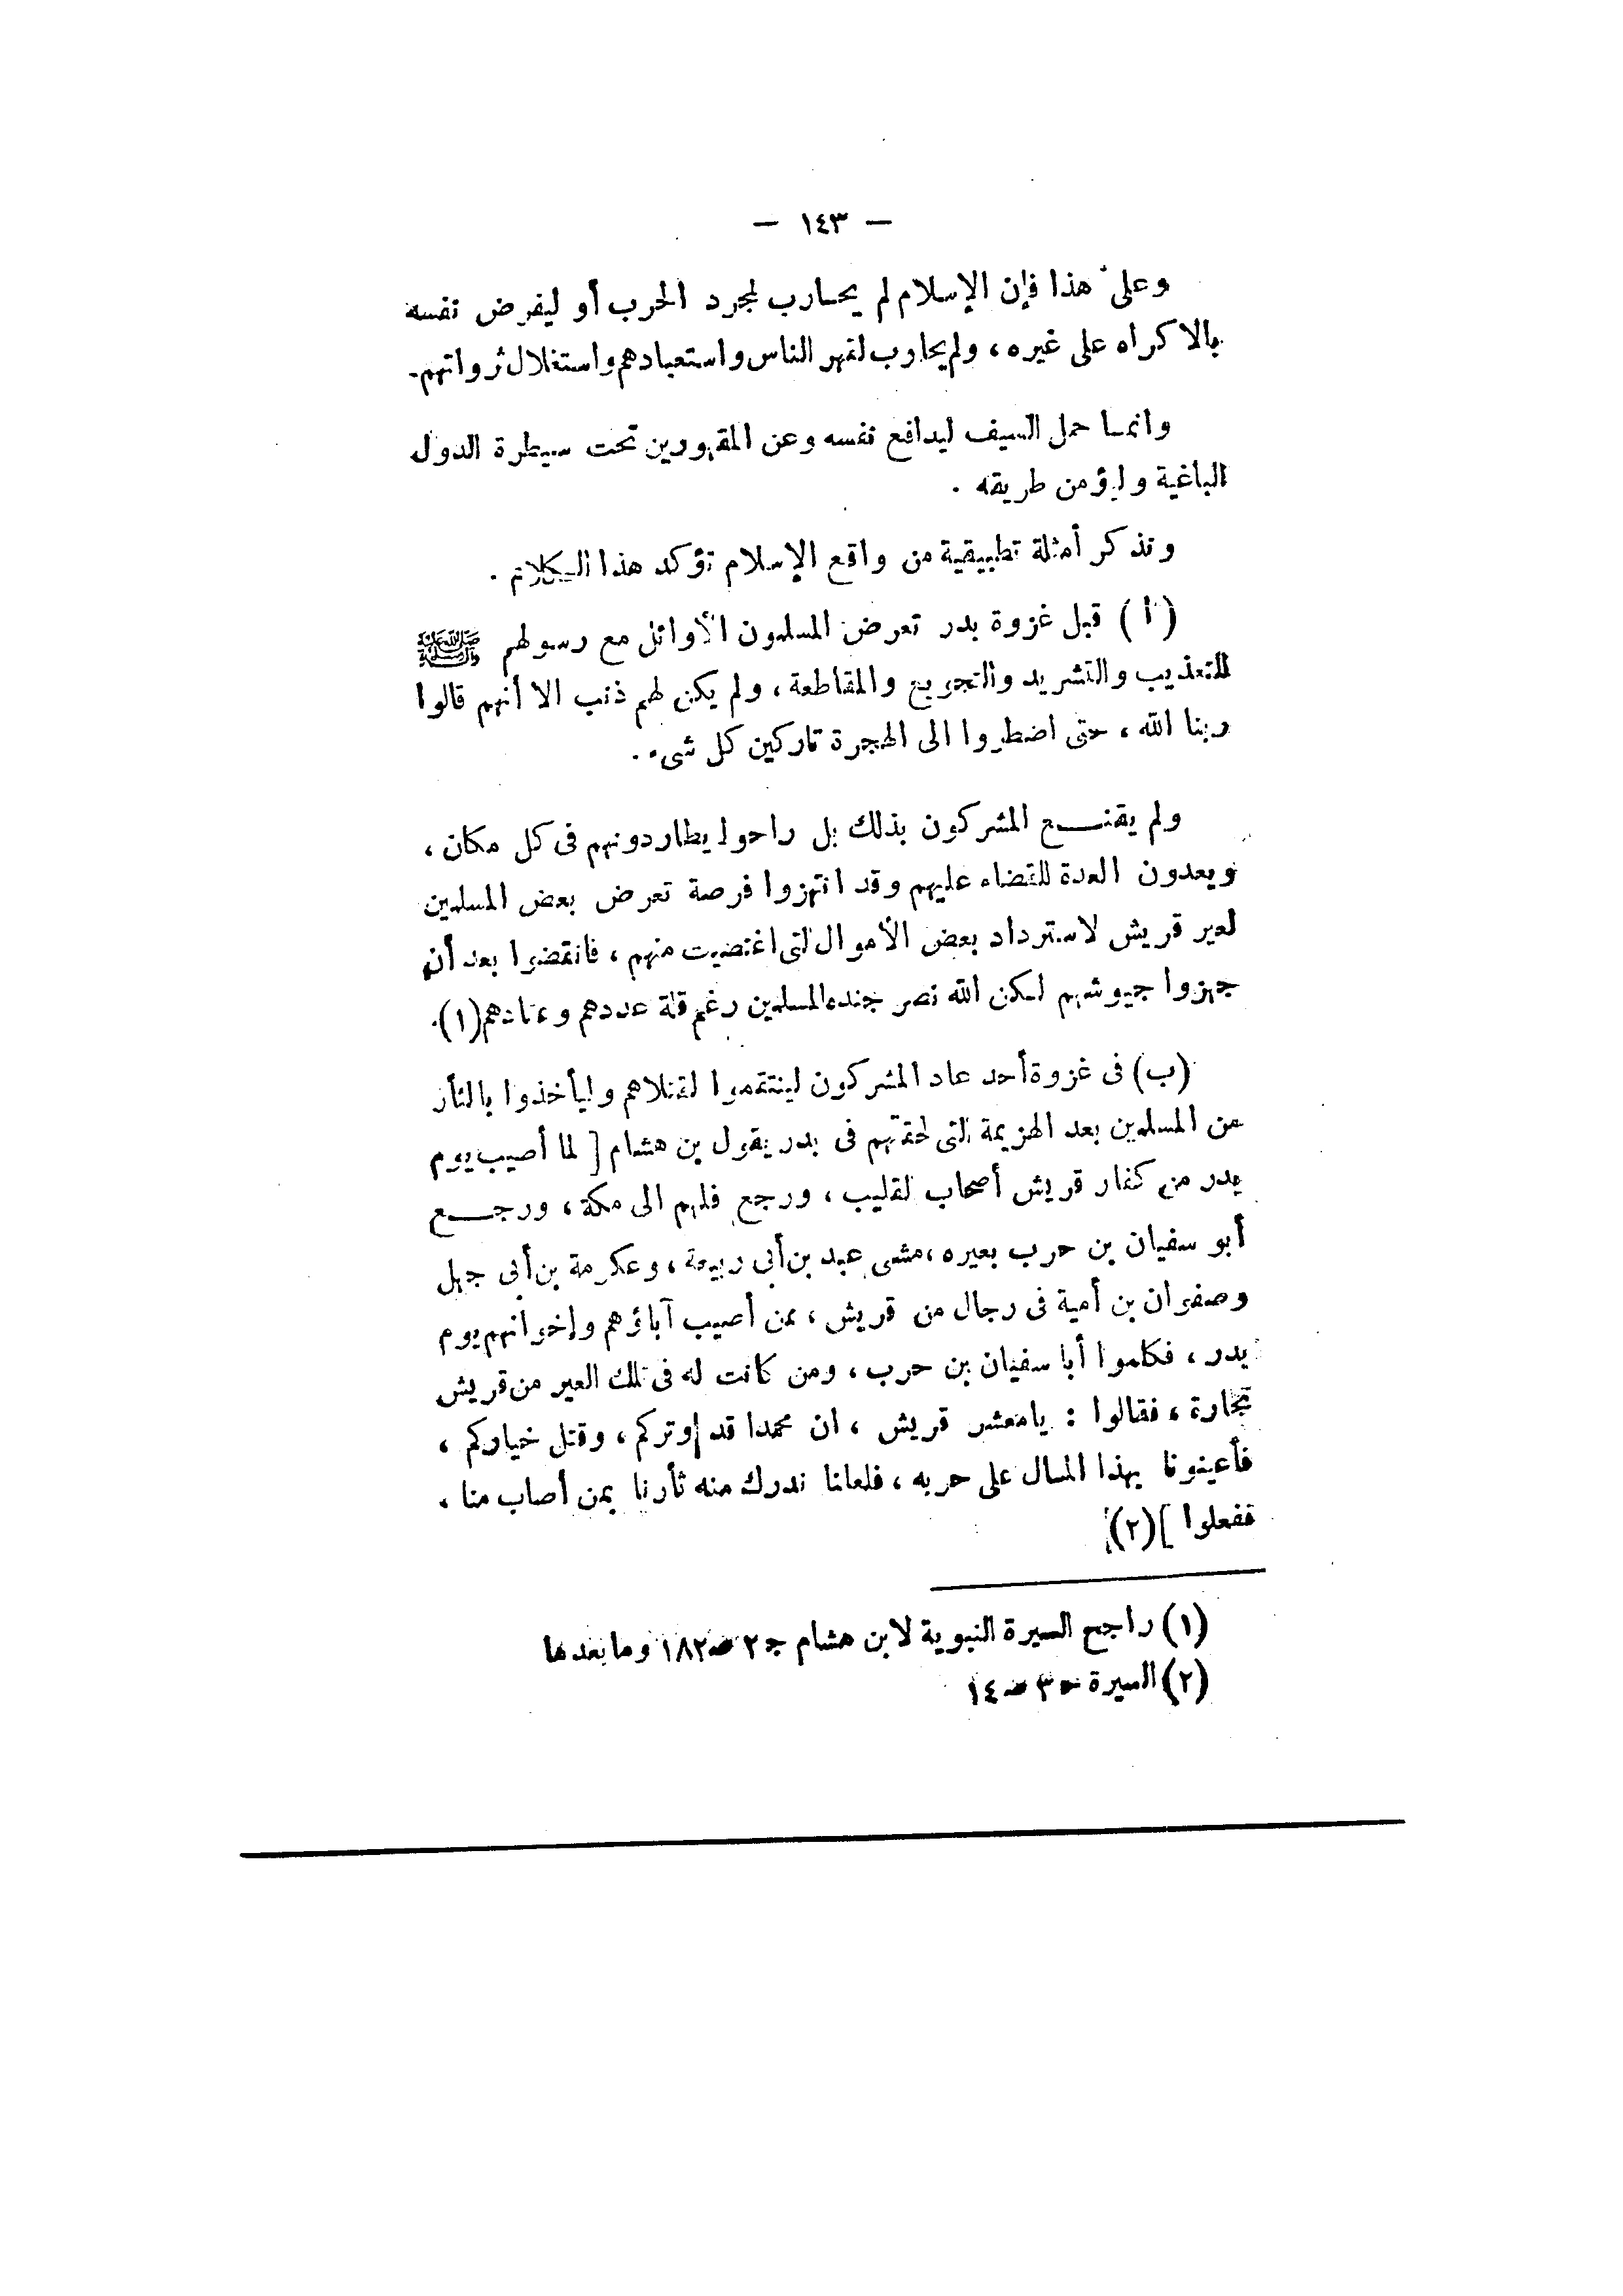 — ١٤٣ —
وعلى هذا فإن الإسلام لم يحارب لمجرد الحرب أو ليفرض نفسه
بالاكراه على غيره ، ولم يحارب لقهر الناس واستعبادهم واستغلال ثرواتهم .
وانما حمل السيف ليدافع نفسه وعن المقهورين تحت سيطرة الدول
الباغية وليؤمن طريقه .
ونذكر أمثلة تطبيقية من واقع الإسلام تؤكد هذا الكلام .
( أ ) قبل غزوة بدر تعرض المسلمون الأوائل مع رسولهم ﷺ
للتعذيب والتشريد والتجويع والمقاطعة ، ولم يكن لهم ذنب الا أنهم قالوا
ربنا الله ، حتى اضطروا الى الهجرة تاركين كل شىء .
ولم يقنع المشركون بذلك بل راحوا يطاردونهم فى كل مكان ،
ويعدون العدة للقضاء عليهم وقد انتهزوا فرصة تعرض بعض المسلمين
لعير قريش لاسترداد بعض الأموال التى اغتصبت منهم ، فانقضوا بعد أن
جهزوا جيوشهم لكن الله نصر جنده المسلمين رغم قلة عددهم وعتادهم (١) .
(ب) فى غزوة أحد عاد المشركون لينتقموا لقتلاهم وليأخذوا بالثأر
من المسلمين بعد الهزيمة التى لحقتهم فى بدر يقول بن هشام [ لما أصيب يوم
بدر من كفار قريش أصحاب القليب ، ورجع فلهم الى مكة ، ورجع
أبو سفيان بن حرب بعيره ، مشى عبد بن أبى ربيعة ، وعكرمة بن أبى جهل
وصفوان بن أمية فى رجال من قريش ، ممن أصيب آباؤهم وإخوانهم يوم
بدر ، فكلموا أبا سفيان بن حرب ، ومن كانت له فى تلك العير من قريش
تجارة ، فقالوا : يا معشر قريش ، ان محمدا قد وتركم ، وقتل خياركم ،
فأعينونا بهذا المال على حربه ، فلعلنا ندرك منه ثأرنا بمن أصاب منا ،
ففعلوا ] (٢)
(١) راجع السيرة النبوية لابن هشام ج ٢ ص ١٨٢ وما بعدها
(٢) السيرة ج ٣ ص ١٤